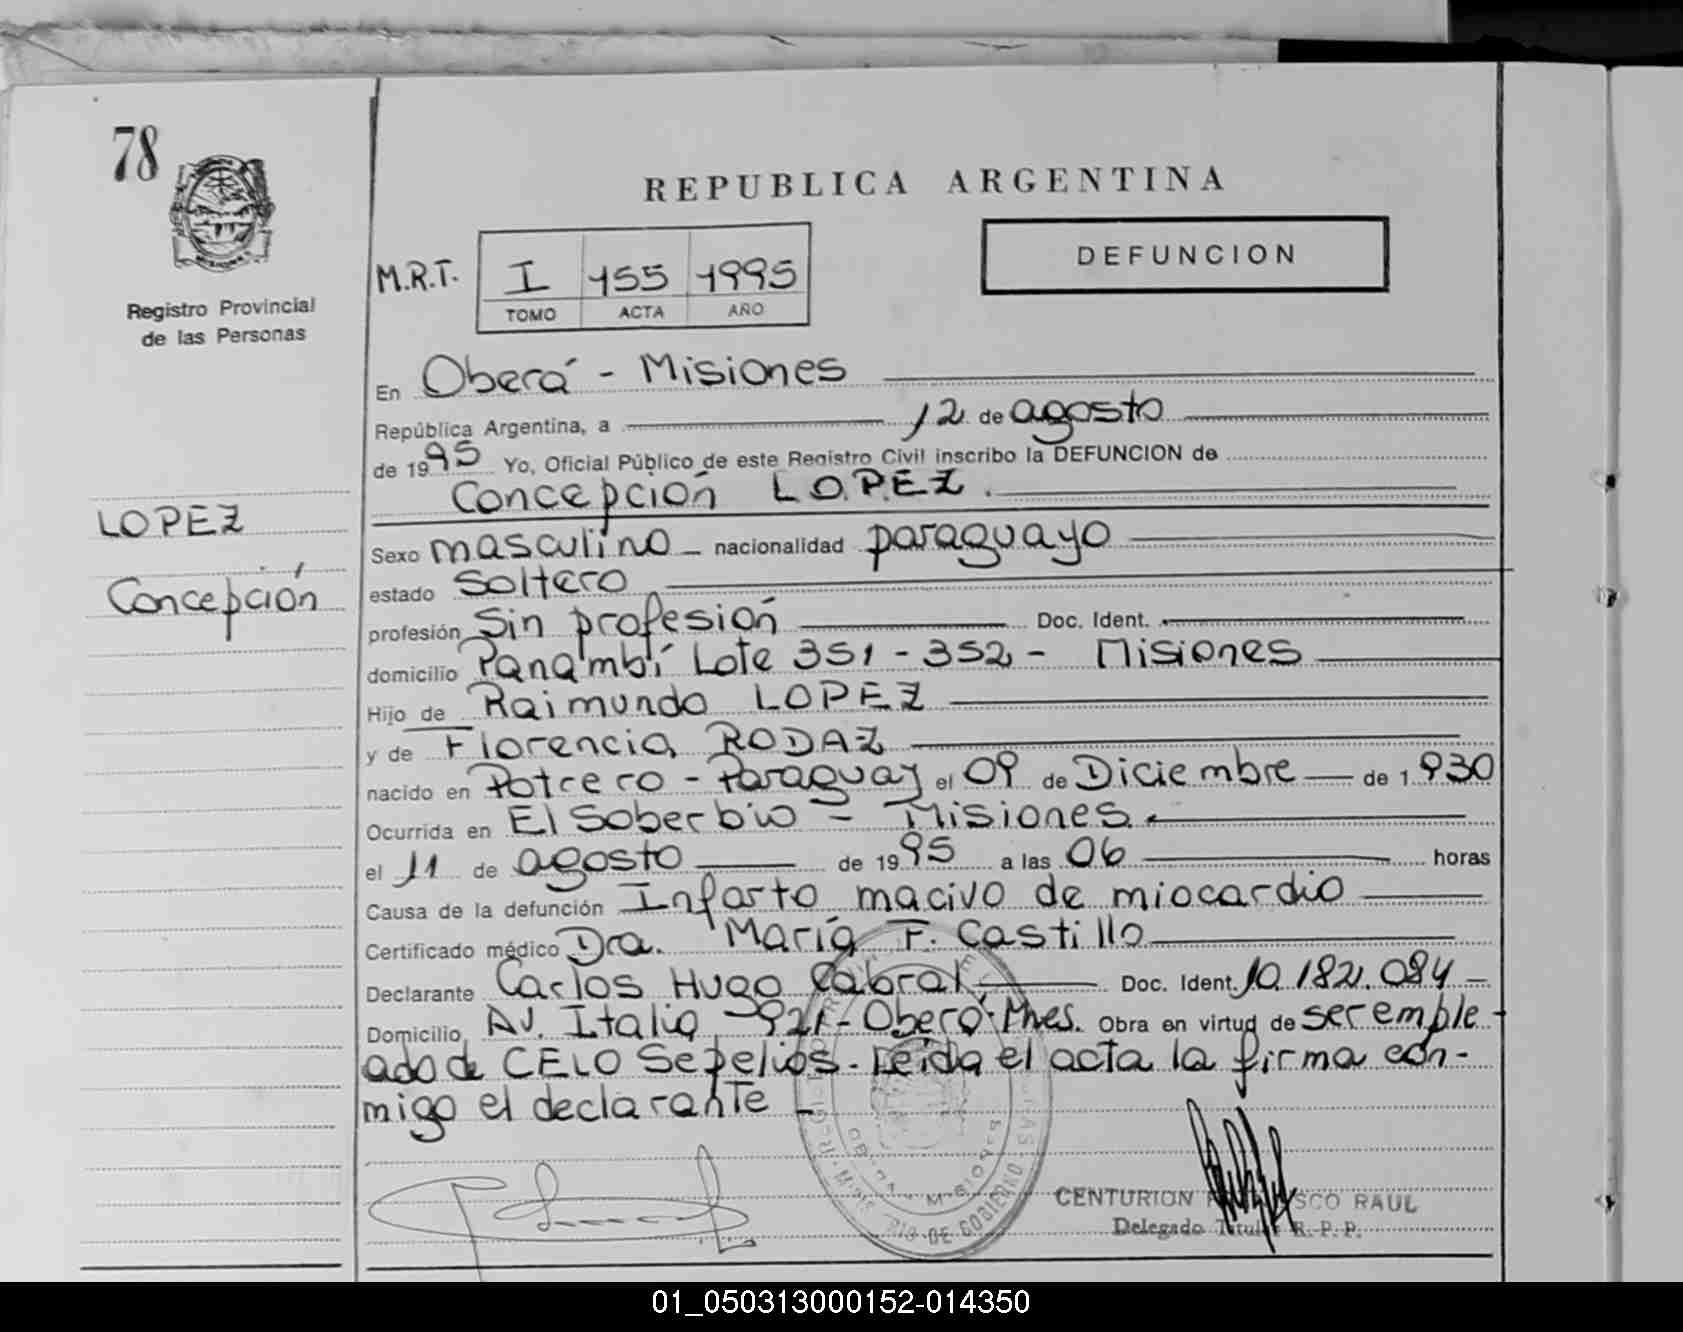 78
Registro Provincial
de las Personas
LOPEZ
Concepción
REPUBLICA ARGENTINA
DEFUNCION
M.R.T. I 155 1995
TOMO ACTA AÑO
En Oberá - Misiones
República Argentina, a 12 de agosto
de 1995 Yo, Oficial Público de este Registro Civil inscribo la DEFUNCION de
Concepción LOPEZ.
Sexo masculino nacionalidad paraguayo
estado Soltero
profesión Sin profesión Doc. Ident.
domicilio Panambí Lote 351 - 352 - Misiones
Hijo de Raimundo LOPEZ
y de Florencia RODAZ
nacido en Potrero - Paraguay el 09 de Diciembre de 1.930
Ocurrida en El Soberbio - Misiones.
el 11 de agosto de 1995 a las 06 horas
Causa de la defunción Infarto macivo de miocardio
Certificado médico Dra. María F. Castillo
Declarante Carlos Hugo Cabral Doc. Ident. 10.182.084 -
Domicilio AV. Italia 921 - Oberá - Mnes. Obra en virtud de ser emple-
ado de CELO Sepelios. Leida el acta la firma con-
migo el declarante -
CENTURION SCO RAUL
Delegado Titular R.P.P.
01_050313000152-014350